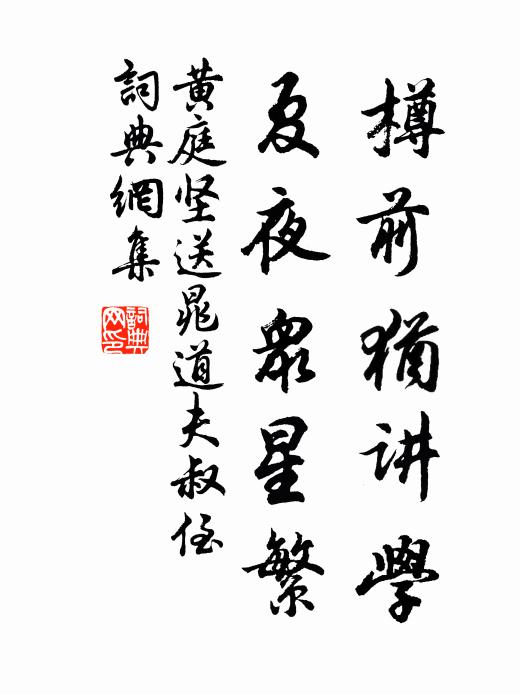 樽前猶讲學
夏夜眾星繁
黄庭坚送晁道夫叔侄
詞典網集
詞典网印